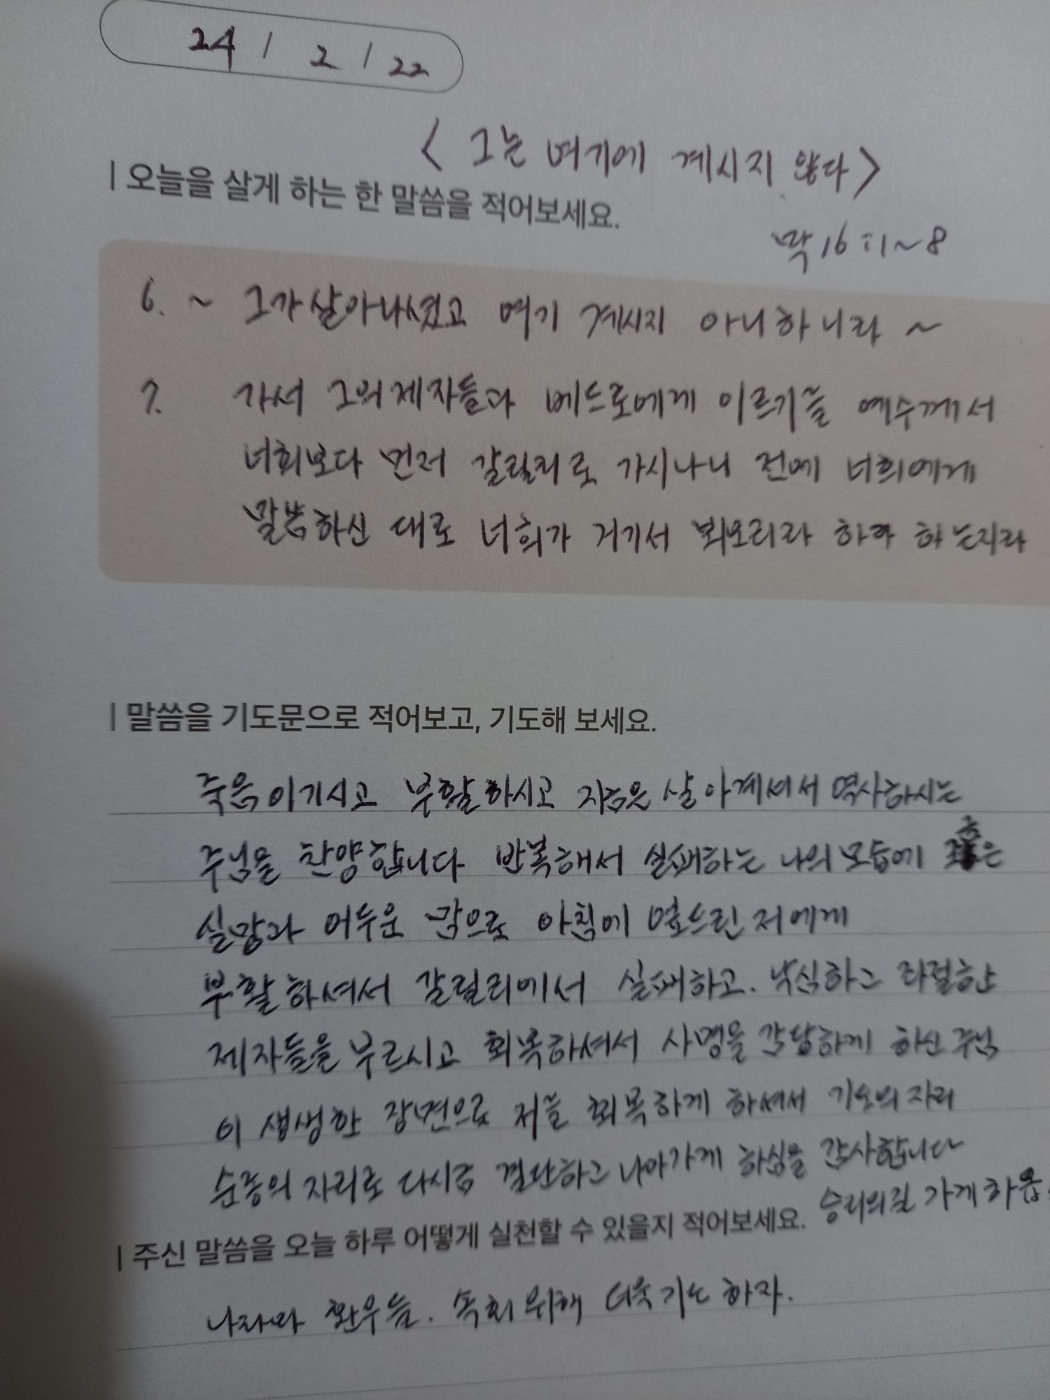 24 / 2 / 22
< 그는 여기에 계시지 않다 >
| 오늘을 살게 하는 한 말씀을 적어보세요.
막 16:1~8
6. ~ 그가 살아나셨고 여기 계시지 아니하니라 ~
7. 가서 그의 제자들과 베드로에게 이르기를 예수께서
너희보다 먼저 갈릴리로 가시나니 전에 너희에게
말씀하신 대로 너희가 거기서 뵈오리라 하라 하는지라
| 말씀을 기도문으로 적어보고, 기도해 보세요.
죽음 이기시고 부활하시고 지금은 살아계셔서 역사하시는
주님을 찬양합니다 반복해서 실패하는 나의 모습에
실망과 어두운 맘으로 아침에 엎드린 저에게
부활하셔서 갈릴리에서 실패하고. 낙심하고 좌절한
제자들을 부르시고 회복하셔서 사명을 감당하게 하신 주님
이 생생한 장면으로 저를 회복하게 하셔서 기도의 자리
순종의 자리로 다시금 결단하고 나아가게 하심을 감사합니다
승리의 길 가게 하옵
| 주신 말씀을 오늘 하루 어떻게 실천할 수 있을지 적어보세요.
나라와 환우들. 속회 위해 더욱 기도 하자.